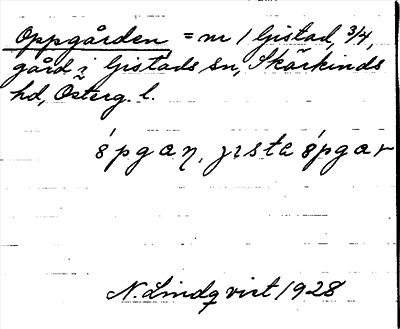 Oppgården = nr 1 Gistad, 3/4,
gård i Gistads sn, Skärkinds
hd, Österg. l.
N. Lindqvist 1928